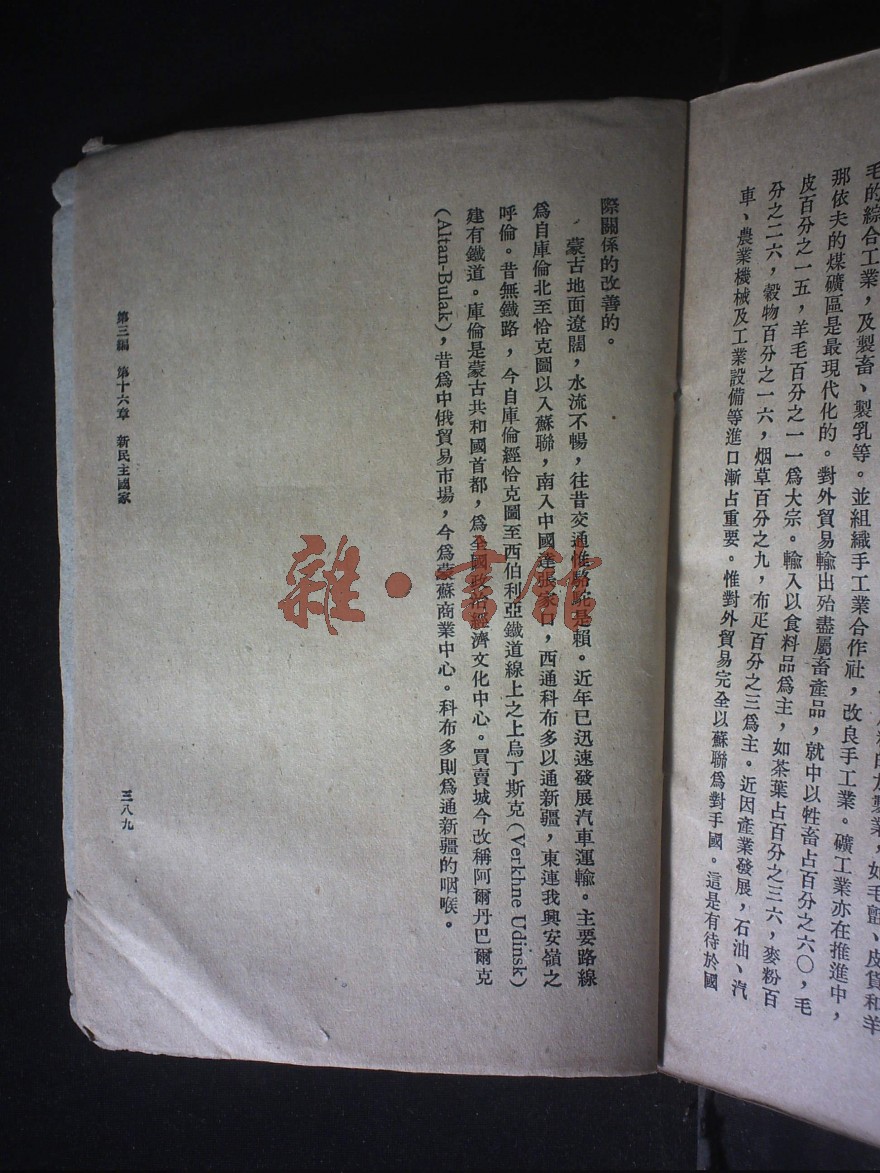 毛的綜合工業，及製畜、製乳等。並組織手工業合作社，改良手工業。礦工業亦在推進中，
那依夫的煤礦區是最現代化的。對外貿易輸出殆盡屬畜產品，就中以牲畜占百分之六〇，毛
皮百分之一五，羊毛百分之一一爲大宗。輸入以食料品爲主，如茶葉占百分之三六，麥粉百
分之二六，穀物百分之一六，烟草百分之九，布疋百分之三爲主。近因產業發展，石油、汽
車、農業機械及工業設備等進口漸占重要。惟對外貿易完全以蘇聯爲對手國。這是有待於國
際關係的改善的。
蒙古地面遼闊，水流不暢，往昔交通惟駱駝是賴。近年已迅速發展汽車運輸。主要路線
爲自庫倫北至恰克圖以入蘇聯，南入中國達張家口，西通科布多以通新疆，東連我興安嶺之
呼倫。昔無鐵路，今自庫倫經恰克圖至西伯利亞鐵道線上之上烏丁斯克(Verkhne Udinsk)
建有鐵道。庫倫是蒙古共和國首都，爲全國政治經濟文化中心。買賣城今改稱阿爾丹巴爾克
(Altan-Bulak)，昔爲中俄貿易市場，今爲蒙蘇商業中心。科布多則爲通新疆的咽喉。
第三編 第十六章 新民主國家
三八九
雜·書館